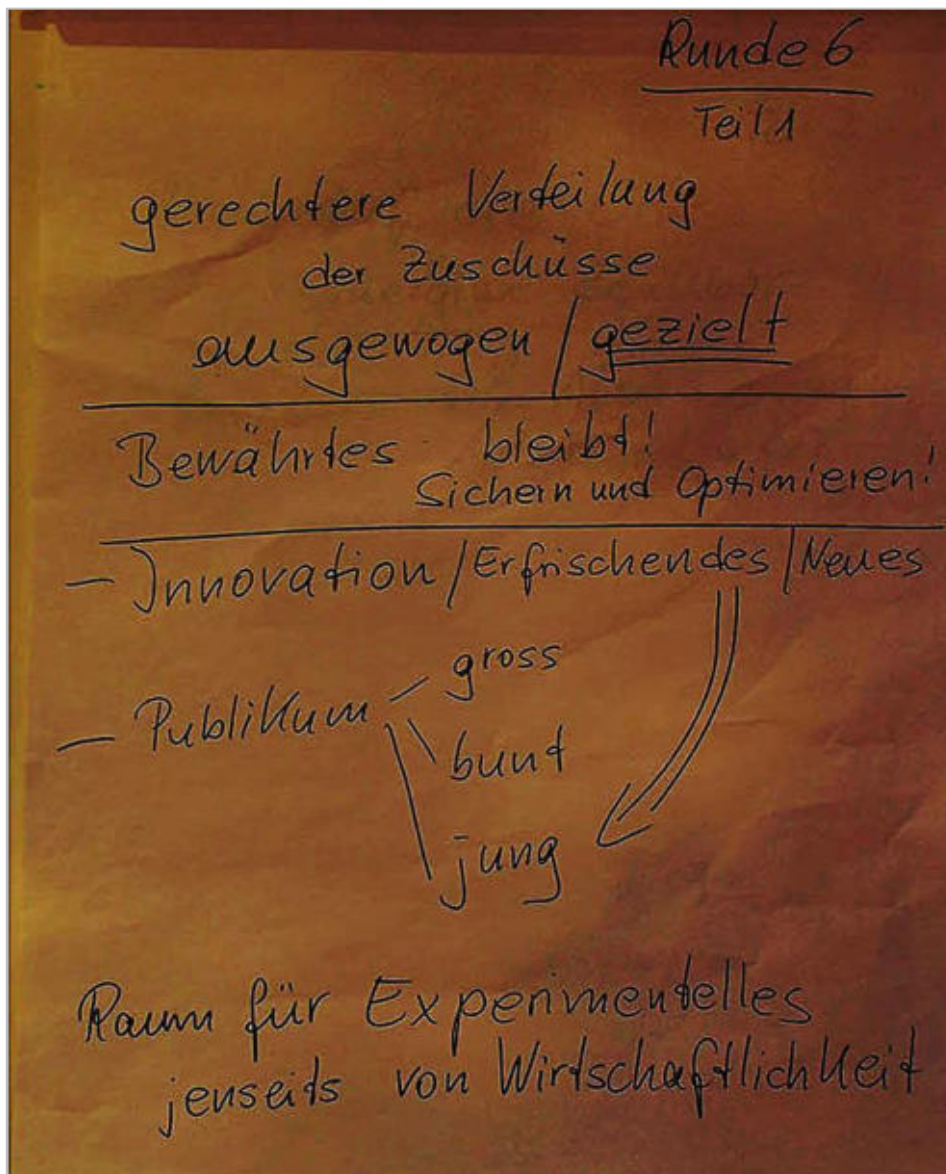 Runde 6
Teil 1
gerechtere Verteilung
der Zuschüsse
ausgewogen / gezielt
Bewährtes bleibt!
Sichern und Optimieren!
- Innovation / Erfrischendes / Neues
gross
- Publikum
bunt
jung
Raum für Experimentelles
jenseits von Wirtschaftlichkeit